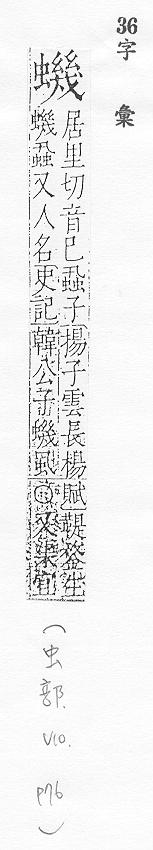 36 字彙
蟣
居里切音己蝨子揚子雲長楊賦鞮鍪生
蟣蝨又人名史記韓公子蟣蝨
又渠宜
(虫部. V10. P76)